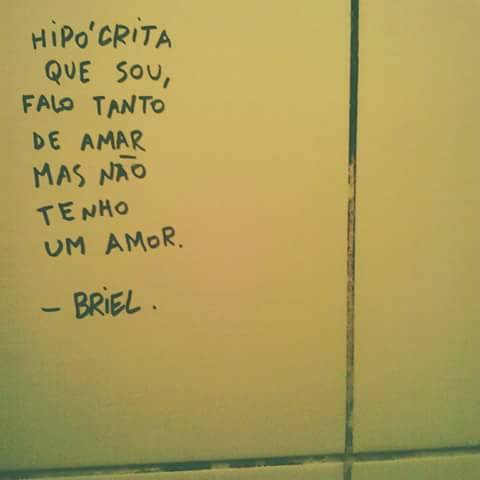 HIPÓCRITA
QUE SOU,
FALO TANTO
DE AMAR
MAS NÃO
TENHO
UM AMOR.
– BRIEL.